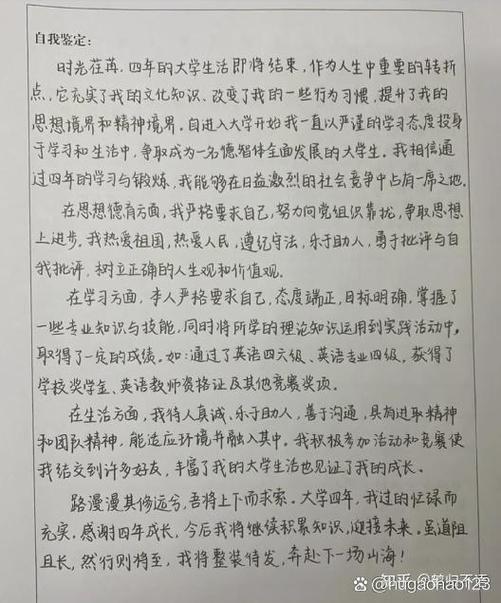 自我鉴定:
时光荏苒,四年的大学生活即将结束,作为人生中重要的转折
点,它充实了我的文化知识、改变了我的一些行为习惯,提升了我的
思想境界和精神境界。自进入大学开始我一直以严谨的学习态度投身
于学习和生活中,争取成为一名德智体全面发展的大学生。我相信通
过四年的学习与锻炼,我能够在日益激烈的社会竞争中占有一席之地。
在思想德育方面,我严格要求自己,努力向党组织靠拢,争取思想
上进步。我热爱祖国,热爱人民,遵纪守法,乐于助人,勇于批评与自
我批评,树立正确的人生观和价值观。
在学习方面,本人严格要求自己,态度端正,目标明确,掌握了
一些专业知识与技能,同时将所学的理论知识运用到实践活动中,
取得了一定的成绩。如:通过了英语四六级、英语专业四级,获得了
学校奖学金、英语教师资格证及其他竞赛奖项。
在生活方面,我待人真诚、乐于助人,善于沟通,具有进取精神
和团队精神,能适应环境并融入其中。我积极参加活动和竞赛使
我结交到许多好友,丰富了我的大学生活也见证了我的成长。
路漫漫其修远兮,吾将上下而求索。大学四年,我过的忙碌而
充实。感谢四年成长,今后我将继续积累知识,迎接未来。虽道阻
且长,然行则将至,我将整装待发,奔赴下一场山海!
知乎
hugaohao123